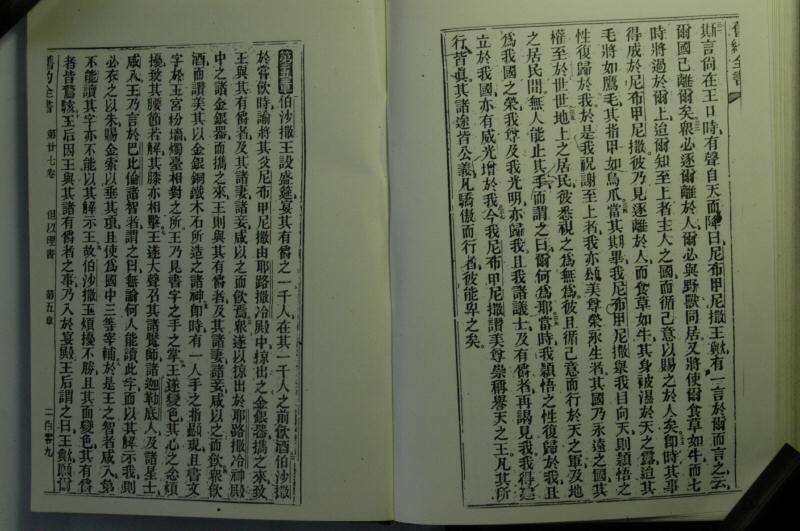 舊約全書
斯言尚在王口時有聲自天而降曰尼布甲尼撒王歟有一言於爾而言之云
爾國已離爾矣眾必逐爾離於人爾必與野獸同居又將使爾食草如牛而七
時將過於爾上迨爾知至上者主人之國而循己意以賜之於人矣即時其事
得成於尼布甲尼撒彼乃見逐離於人而食草如牛其身被濕於天之露迨其
毛將如鷹毛其指甲如鳥爪當其期畢我尼布甲尼撒舉我目向天則穎悟之
性復歸於我於是我祝謝至上者我亦頌美尊榮永生者其國乃永遠之國其
權至於世世地上之居民彼悉視之為無為彼且循己意而行於天之軍及地
之居民間無人能止其手而謂之曰爾何為耶當時我穎悟之性復歸於我且
為我國之榮我尊及我光明亦歸我且我諸議士及有爵者再謁見我我得
立於我國亦有威光增於我今我尼布甲尼撒讚美尊崇稱譽天之王凡其所
行皆真其諸途皆公義凡驕傲而行者彼能卑之矣
第五章伯沙撒王設盛筵宴其有爵之一千人在其一千人之前飲酒伯沙撒
於嘗飲時諭將其父尼布甲尼撒由耶路撒冷殿中掠出之金銀器攜之來致
王與其有爵者及其諸妻諸妾咸以之而飲焉眾遂以掠出於耶路撒冷神殿
中之諸金銀器而攜之來王則與其有爵者及其諸妻諸妾咸以之而飲眾飲
酒而讚美其以金銀銅鐵木石所造之諸神即時有一人手之指顯現且書文
字於王宮粉墻燭臺相對之所王乃見書字之手之掌王遂變色其心之念煩
擾致其腰節若解其膝亦相擊王遂大聲召其諸覺師諸迦勒底人及諸星士
咸入王乃言於巴比倫諸智者謂之曰無論何人能讀此字而以其解示我則
必衣之以朱賜金索以垂其項且使為國中三等宰輔於是王之智者咸入第
不能讀其字亦不能以其解示王故伯沙撒王煩擾不勝且其面變色其有爵
者皆驚駭王后因王與其諸有爵者之事乃入於宴殿王后謂之曰王歟願爾
舊約全書 第廿七卷 但以理書 第五章 二百零九